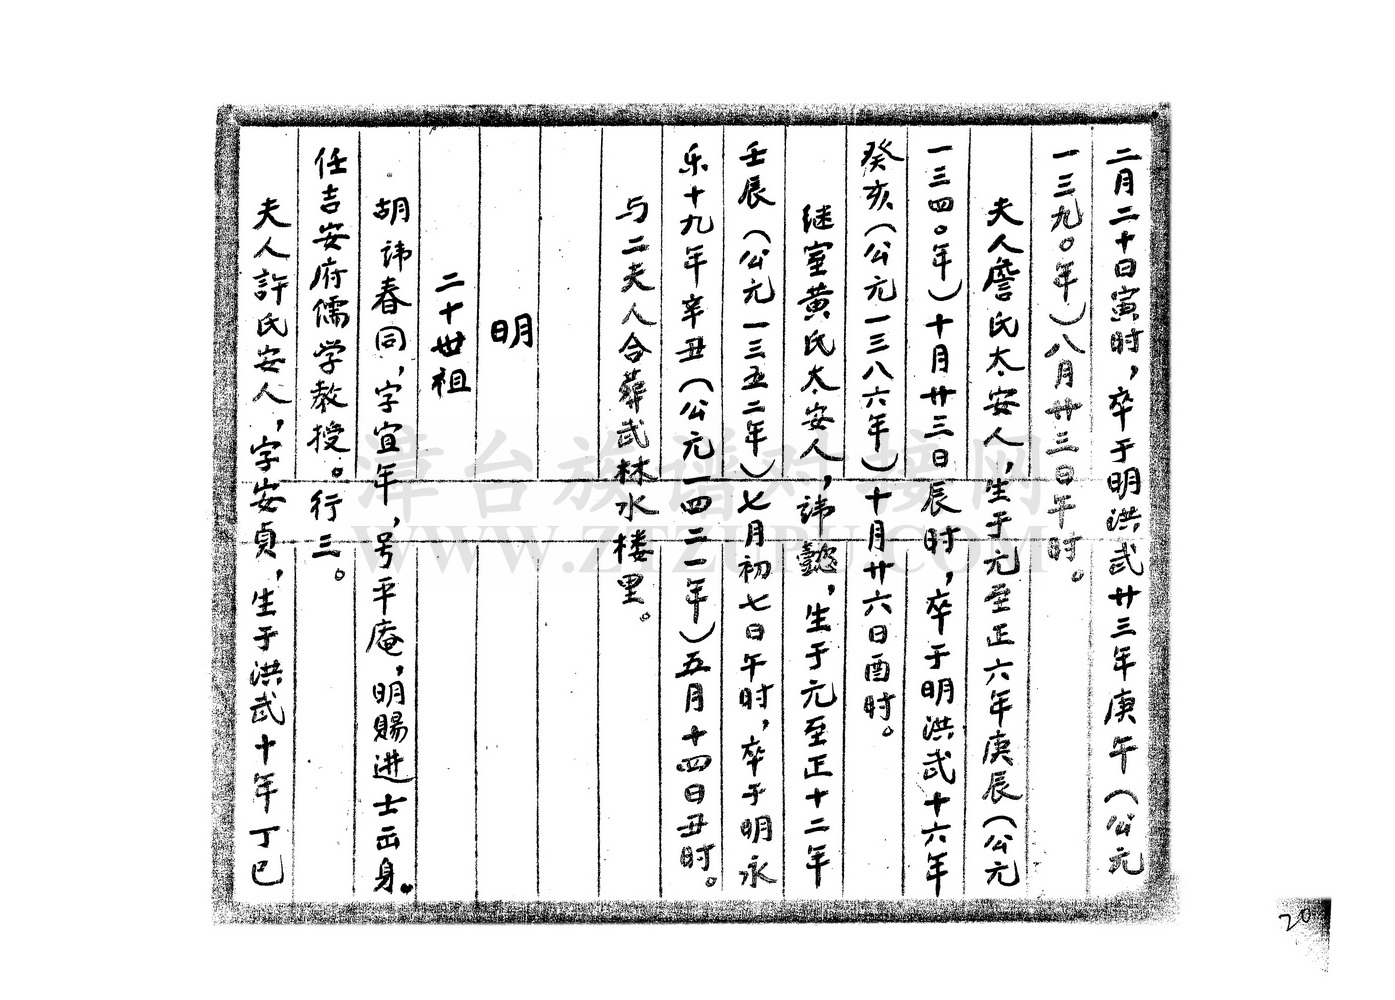 二月二十日寅时，卒于明洪武廿三年庚午（公元
一三九〇年）八月廿三日午时。
夫人詹氏太安人，生于元至正六年庚辰（公元
一三四〇年）十月廿三日辰时，卒于明洪武十六年
癸亥（公元一三八六年）十月廿六日酉时。
继室黄氏太安人，讳懿，生于元至正十二年
壬辰（公元一三五二年）七月初七日午时，卒于明永
乐十九年辛丑（公元一四二一年）五月十四日丑时。
与二夫人合葬武林水楼里。
明
二十世祖
胡讳春同，字宜年，号平庵，明賜进士出身。
任吉安府儒学教授。行三。
夫人許氏安人，字安貞，生于洪武十年丁巳
20
津台族谱对接网
WWW.ZTZUPU.COM